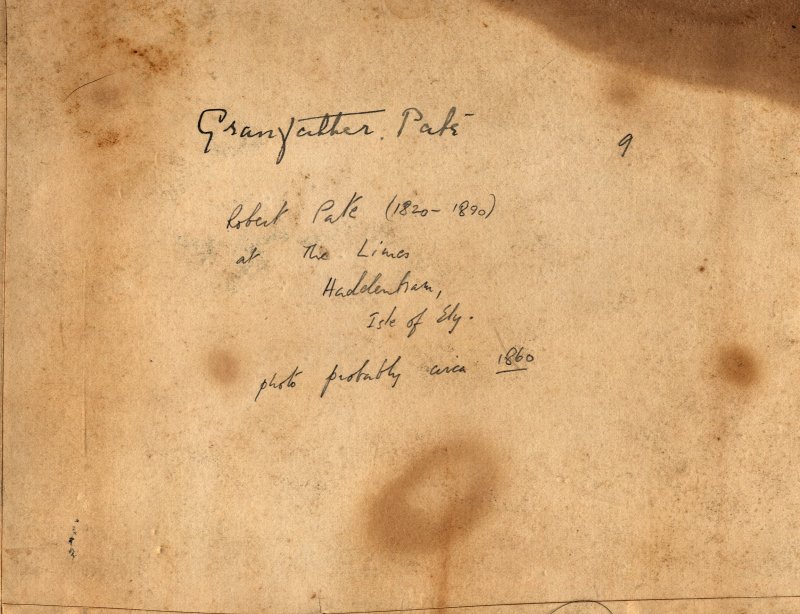 Granfather. Pate
9
Robert Pate (1820-1890)
at The Limes
Haddenham,
Isle of Ely.
photo probably circa 1860